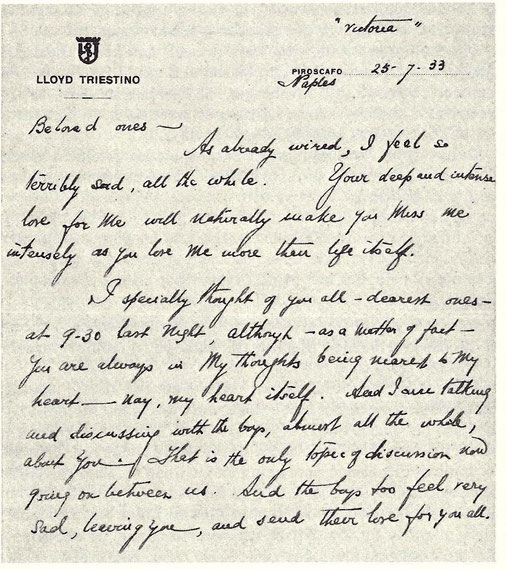 "Victoria"
LLOYD TRIESTINO
PIROSCAFO 25-7-33
Naples
Beloved ones —
As already wired, I feel so
terribly sad, all the while. Your deep and intense
love for Me will naturally make you Miss me
intensely as you love Me more then life itself.
I specially thought of you all - dearest ones -
at 9-30 last Night, although - as a matter of fact -
you are always in My thoughts being nearest to My
heart — nay, my heart itself. And I am talking
and discussing with the boys, almost all the while,
about You. That is the only topic of discussion now
going on between us. And the boys too feel very
sad, leaving you, and send their love for you all.